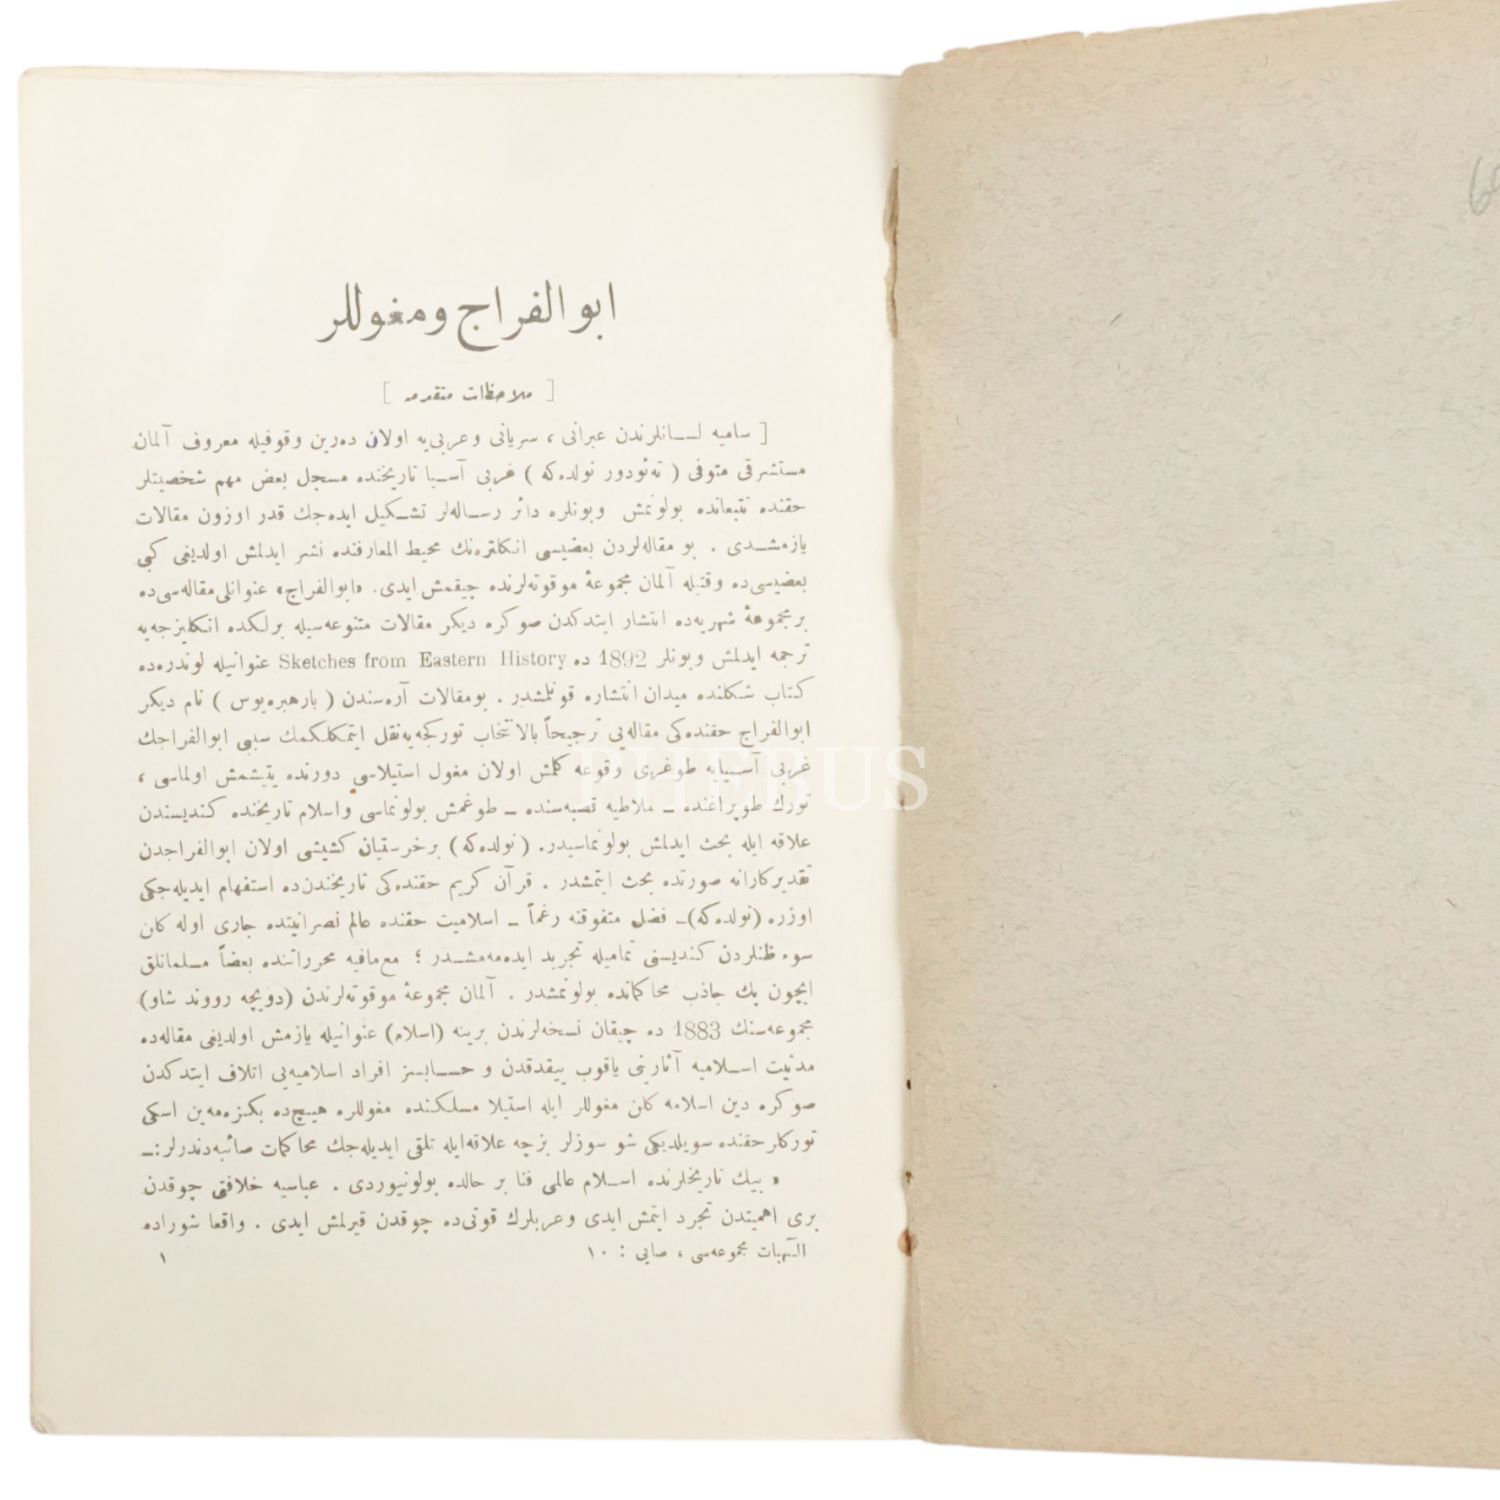 ابوالفراج ومغوللر
[ ملاحظات متقدمه ]
[ ساميه لسانلرندن عبرانی ، سريانی وعربی‌يه اولان ده‌رين وقوفيله معروف آلمان
مستشرقی متوفی ( ته‌ئودور نولده‌كه ) غربی آسيا تاريخنده مسجل بعض مهم شخصيتلر
حقنده تتبعاتده بولونمش وبونلره دائر رساله‌لر تشكيل ايده‌جك قدر اوزون مقالات
يازمشدی . بو مقاله‌لردن بعضيسی انكلتره‌نك محيط المعارفنده نشر ايدلمش اولديغی كبی
بعضيسی‌ده وقتيله آلمان مجموعهٔ موقوته‌لرنده چيقمش ايدی. «ابوالفراج» عنوانلی مقاله‌سی‌ده
بر مجموعهٔ شهريه‌ده انتشار ايتدكدن صوكره ديكر مقالات متنوعه‌سيله برلكده انكليزجه‌يه
ترجمه ايدلمش وبونلر 1892 ده Sketches from Eastern History عنوانيله لوندره‌ده
كتاب شكلنده ميدان انتشاره قونلمشدر . بومقالات آره‌سندن ( بارهبره‌يوس ) نام ديكر
ابوالفراج حقنده‌كی مقاله‌يی ترجيحاً بالانتخاب توركجه‌يه نقل ايتمكلكمك سببی ابوالفراجك
غربی آسيايه طوغری وقوعه كلمش اولان مغول استيلاسی دورنده يتيشمش اولماسی ،
تورك طوپراغنده ــ ملاطيه قصبه‌سنده ــ طوغمش بولونماسی واسلام تاريخنده كنديسندن
علاقه ايله بحث ايدلمش بولونماسيدر. ( نولده‌كه ) برخرستيان كشيشی اولان ابوالفراجدن
تقديركارانه صورتده بحث ايتمشدر . قرآن كريم حقنده‌كی تاريخندن‌ده استفهام ايديله‌جكی
اوزره (نولده‌كه)ــ فضل متفوقنه رغماً ــ اسلاميت حقنده عالم نصرانيتده جاری اوله كلن
سوء ظنلردن كنديسنی تماميله تجريد ايده‌مه‌مشدر ؛ مع‌مافيه محرراتنده بعضاً مسلمانلق
ايچون پك جاذب محاكماتده بولونمشدر . آلمان مجموعهٔ موقوته‌لرندن (دويچه رووند شاو)
مجموعه‌سنك 1883 ده چيقان نسخه‌لرندن برينه (اسلام) عنوانيله يازمش اولديغی مقاله‌ده
مدنيت اسلاميه آثارينی ياقوب ييقدقدن و حسابسز افراد اسلاميه‌يی اتلاف ايتدكدن
صوكره دين اسلامه كلن مغوللر ايله استيلا مسلكنده مغوللره هيچ‌ده بكزه‌مه‌ين اسكی
توركلر حقنده سويلديكی شو سوزلر بزجه علاقه‌ايله تلقی ايديله‌جك محاكمات صائبه‌دندرلر:ــ
« بيك تاريخلرنده اسلام عالمی فنا بر حالده بولونيوردی . عباسيه خلافتی چوقدن
بری اهميتدن تجرد ايتمش ايدی وعربلرك قوتی‌ده چوقدن قيرلمش ايدی . واقعا شوراده
الٓهيات مجموعه‌سی ، صايی : ١٠
١